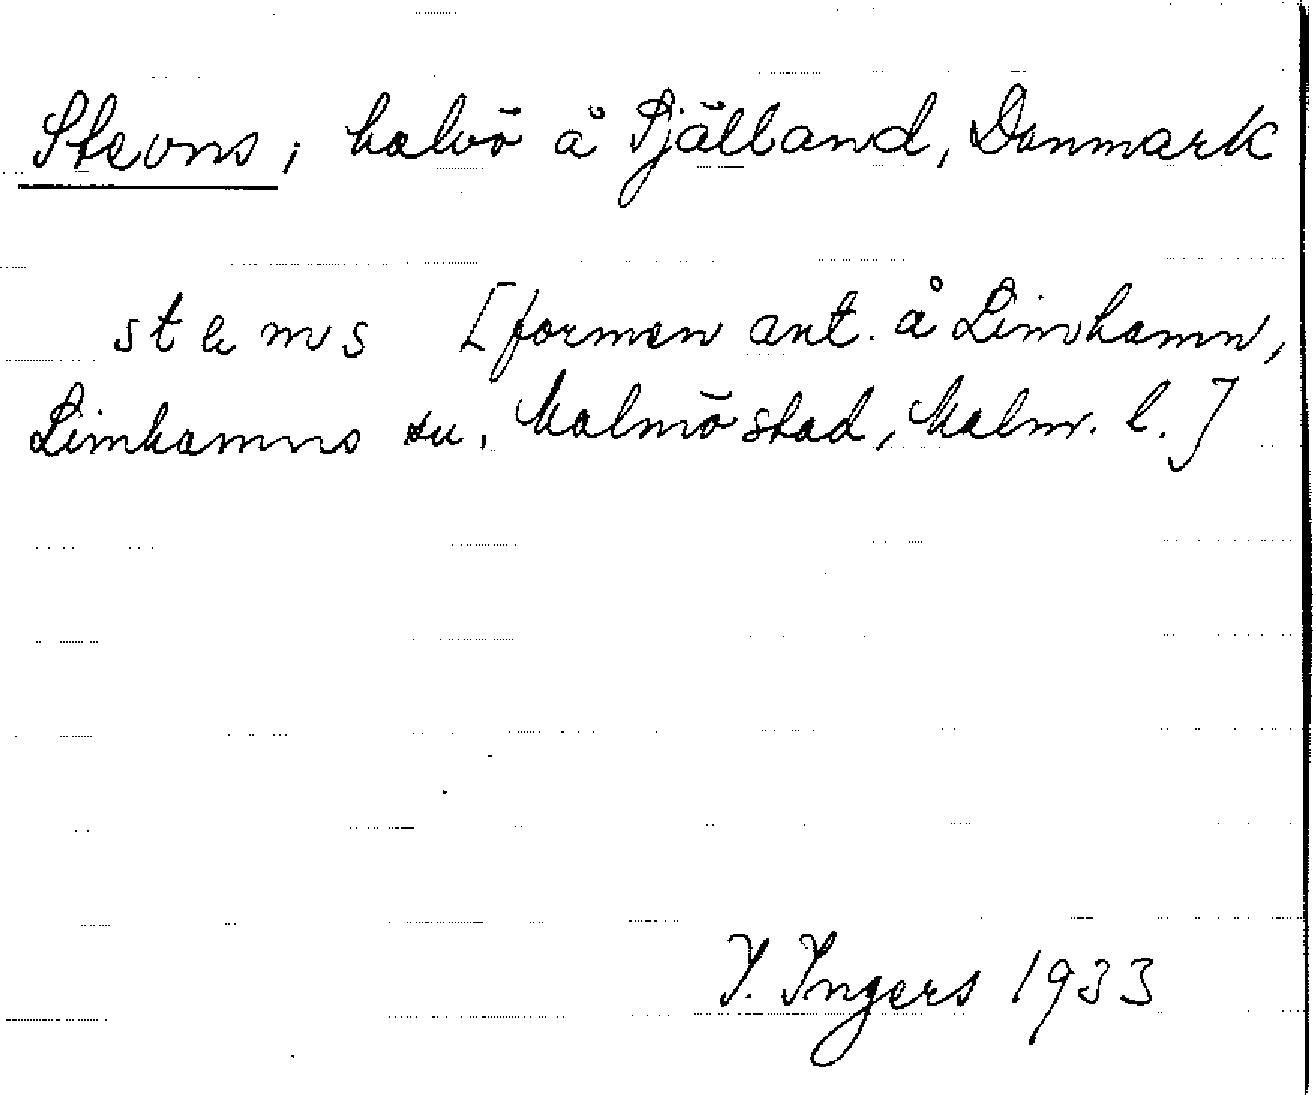 Stevns, halvö å Själland, Danmark
[formen ant. å Limhamn,
Limhamns sn, Malmö stad, Malm. l.]
I. Ingers 1933